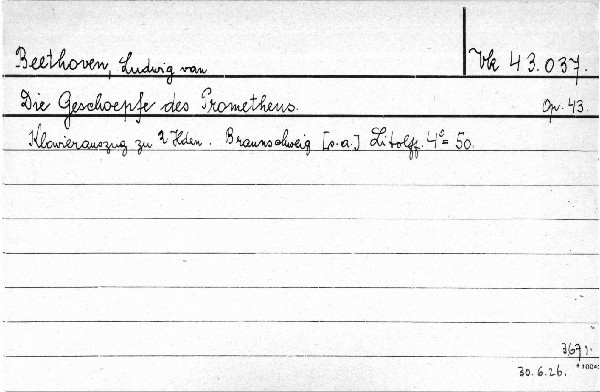 Beethoven, Ludwig van Vk 43.037.
Die Geschoepfe des Prometheus. Op. 43.
Klavierauszug zu 2 Hden. Braunschweig [s.a.] Litolff. 4°= 50.
30.6.26.